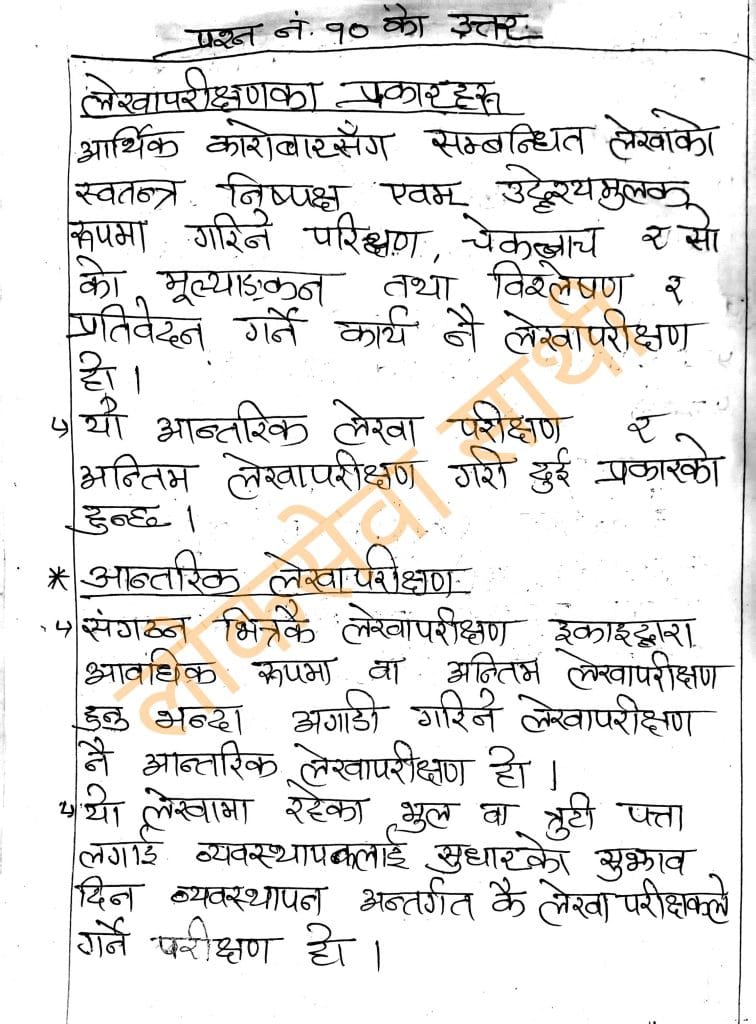 प्रश्न नं. १० को उत्तर
लेखापरीक्षणका प्रकारहरू
आर्थिक कारोबारसँग सम्बन्धित लेखाको
स्वतन्त्र निष्पक्ष एवम् उद्देश्यमुलक
रूपमा गरिने परिक्षण, चेकजाँच र सो
को मूल्याङ्कन तथा विश्लेषण र
प्रतिवेदन गर्ने कार्य नै लेखापरीक्षण
हो ।
↳ यो आन्तरिक लेखा परीक्षण र
अन्तिम लेखापरीक्षण गरी दुई प्रकारको
हुन्छ ।
* आन्तरिक लेखापरीक्षण
↳ संगठन भित्रकै लेखापरीक्षण इकाइद्वारा
आवधिक रूपमा वा अन्तिम लेखापरीक्षण
हुनु भन्दा अगाडी गरिने लेखापरीक्षण
नै आन्तरिक लेखापरीक्षण हो ।
↳ यो लेखामा रहेका भुल वा त्रुटी पत्ता
लगाई व्यवस्थापकलाई सुधारको सुझाव
दिन व्यवस्थापन अन्तर्गत कै लेखा परीक्षकले
गर्ने परीक्षण हो ।
लोकसेवा साथी